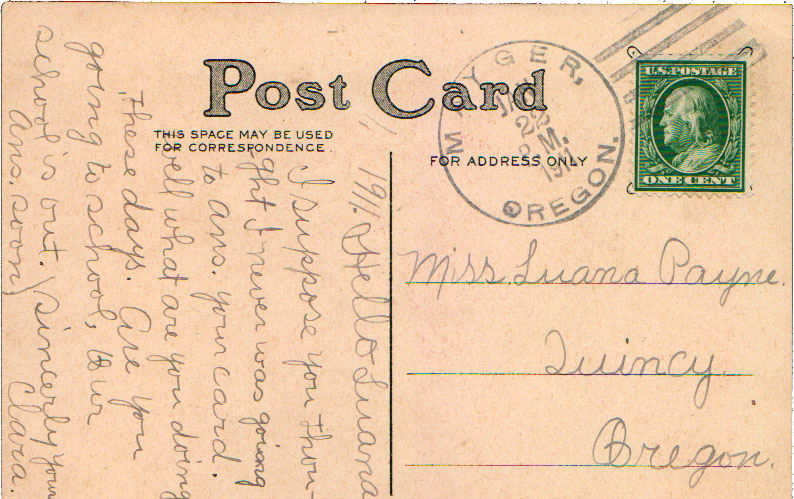 Post Card
THIS SPACE MAY BE USED
FOR CORRESPONDENCE.
FOR ADDRESS ONLY
MAYGER,
JAN
2
M.
1911
OREGON.
U.S. POSTAGE
ONE CENT
Miss. Luana Payne.
Quincy
Oregon.
1911. Hello Luana
I suppose you thou-
ght I never was going
to ans. your card.
well what are you doing
these days. Are you
going to school, Our
school is out. Sincerly your
ans. soon) Clara.